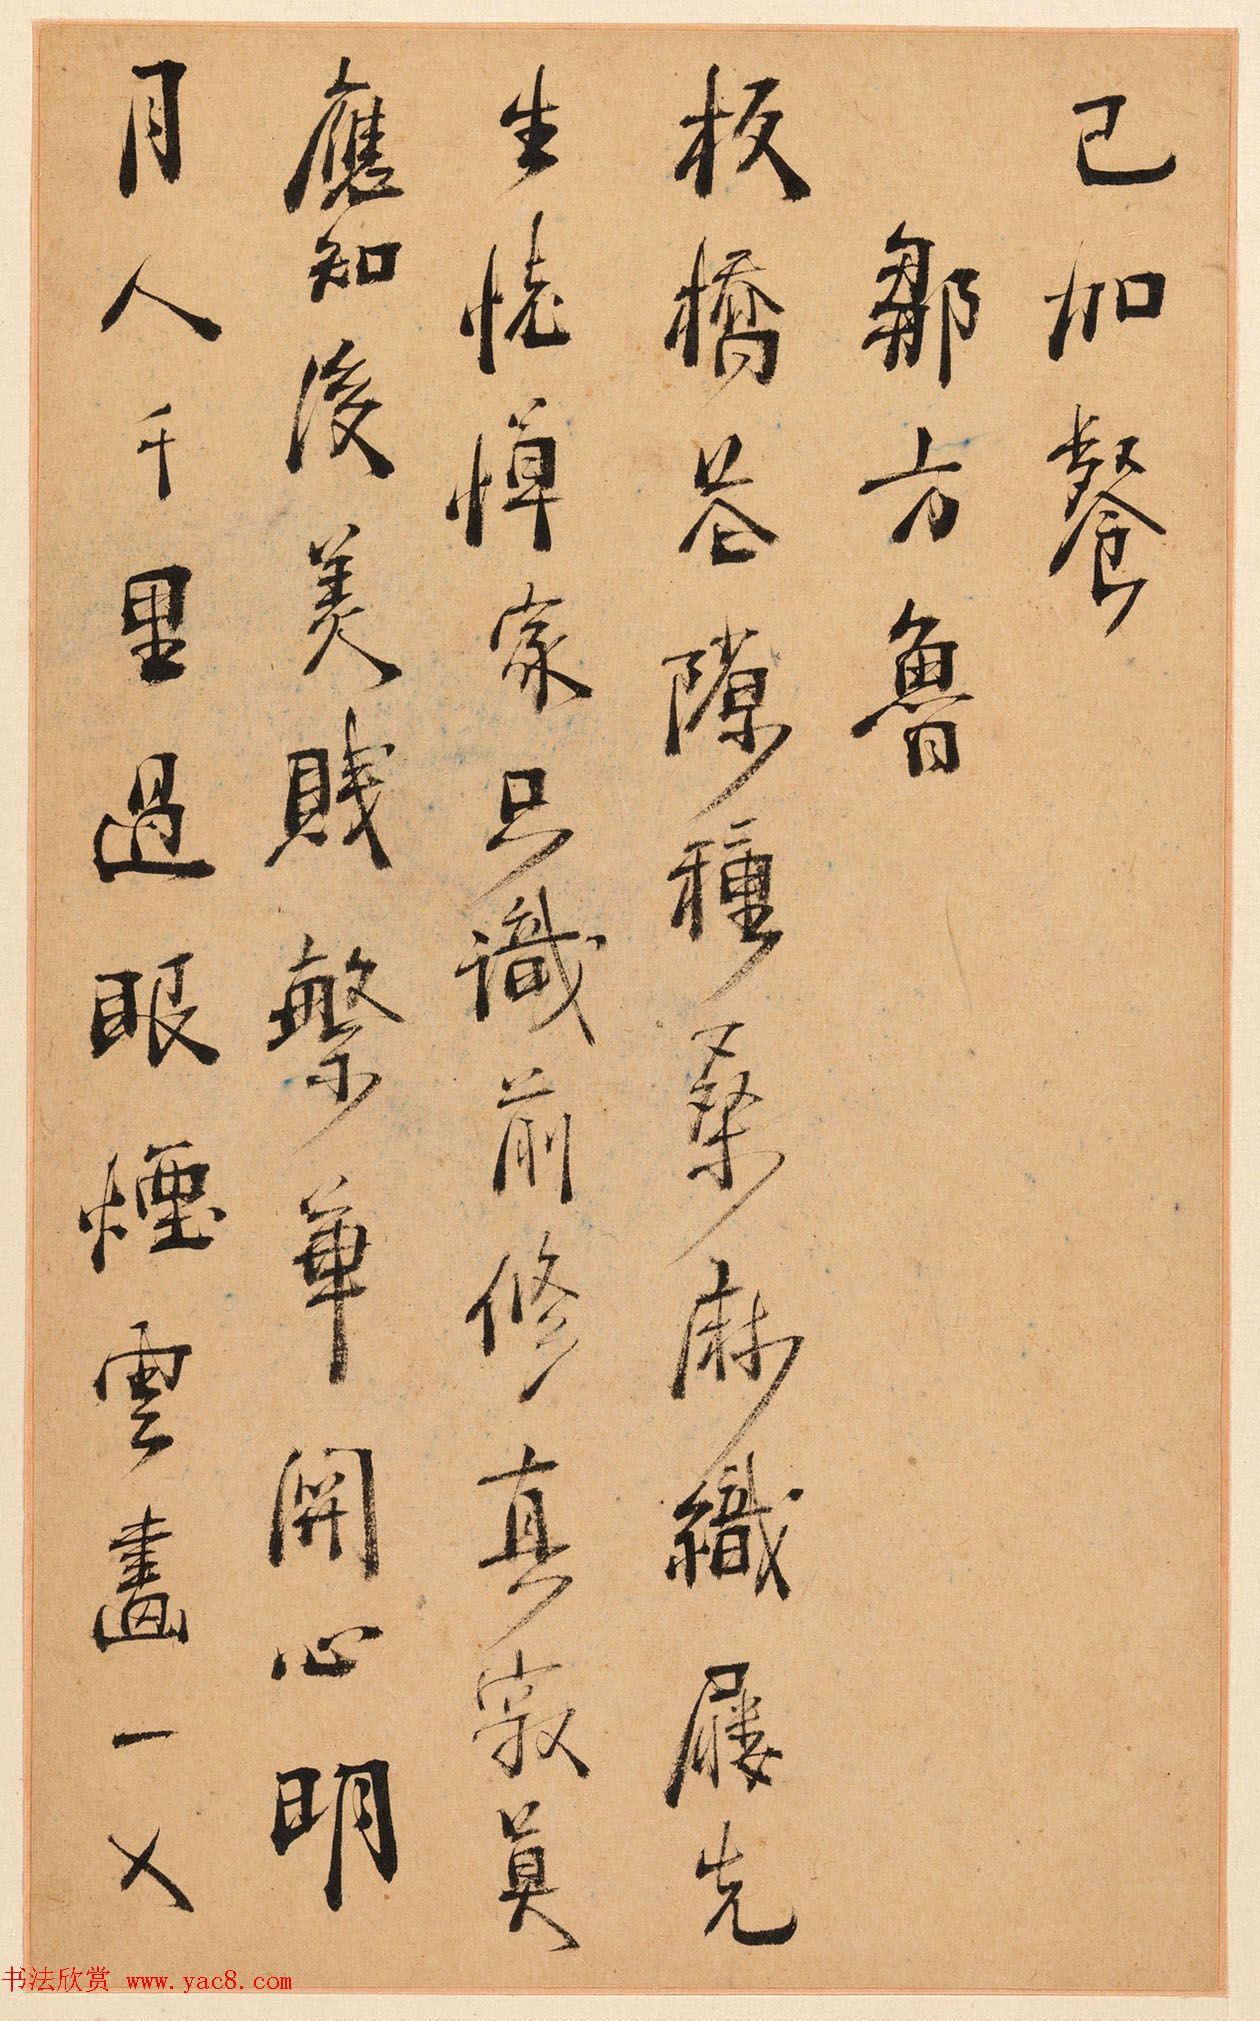 已加餐
鄒方魯
板橋隙種桑麻織屨先
生家只識前修真寂莫
應知後美賤繁華開心明
月人千里過眼煙雲畫一乂
书法欣赏 www.yac8.com